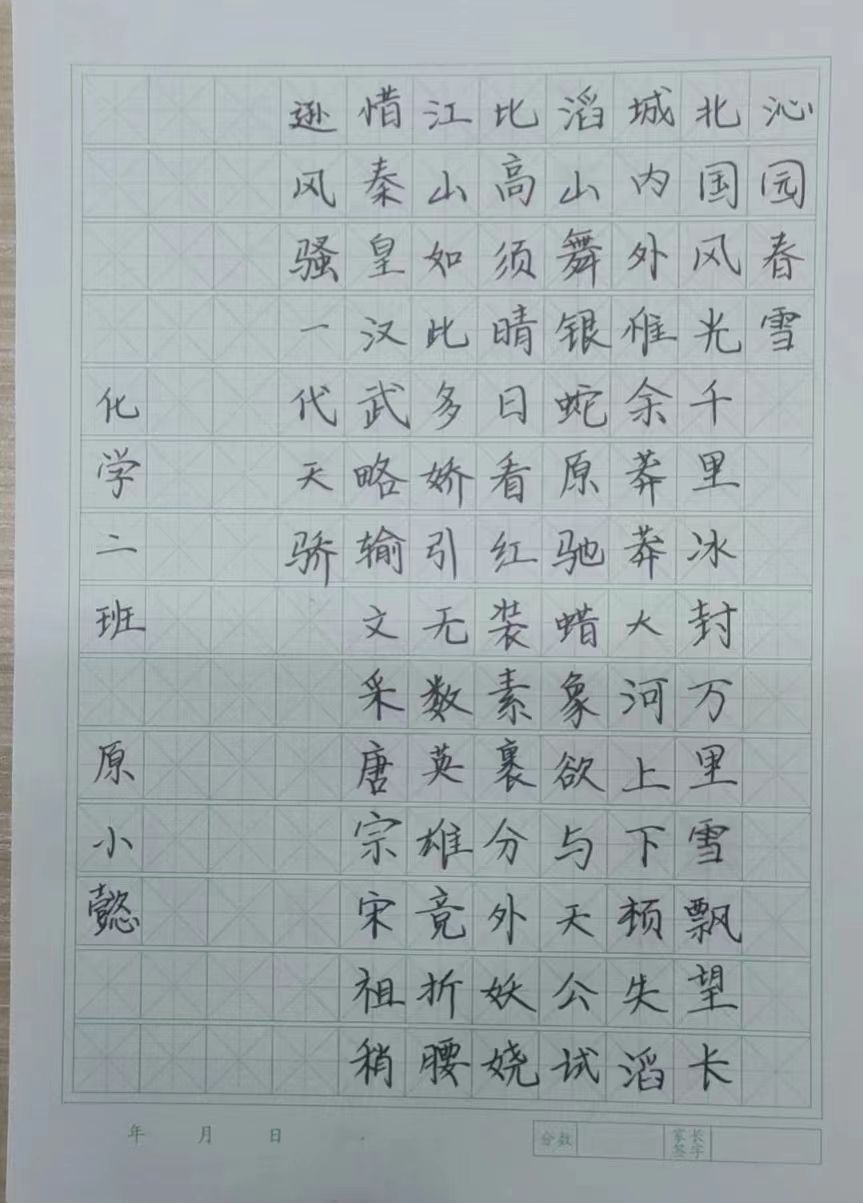 沁园春雪
北国风光千里冰封万里雪飘望长
城内外惟余莽莽大河上下顿失滔
滔山舞银蛇原驰蜡象欲与天公试
比高须晴日看红装素裹分外妖娆
江山如此多娇引无数英雄竞折腰
惜秦皇汉武略输文采唐宗宋祖稍
逊风骚一代天骄
化学二班 原小懿
年 月 日
分数
家长签字